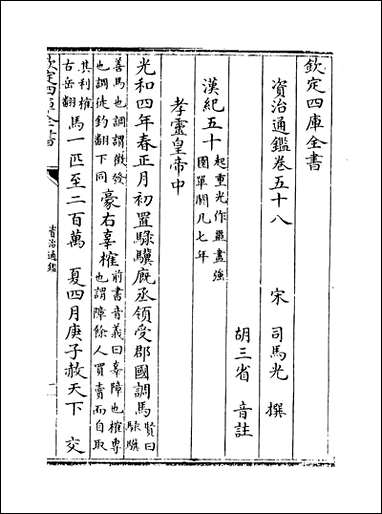 欽定四庫全書
資治通鑑卷五十八
宋 司馬光 撰
胡三省 音註
漢紀五十
起重光作噩盡強
圉單閼凡七年
孝靈皇帝中
光和四年春正月初置騄驥廐丞領受郡國調馬
賢曰
騄驥
善馬也調謂徵發
也調徒釣翻下同
豪右辜榷
前書音義曰辜障也榷專
也謂障餘人買賣而自取
其利榷
古岳翻
馬一匹至二百萬 夏四月庚子赦天下 交
欽定四庫全書
資治通鑑